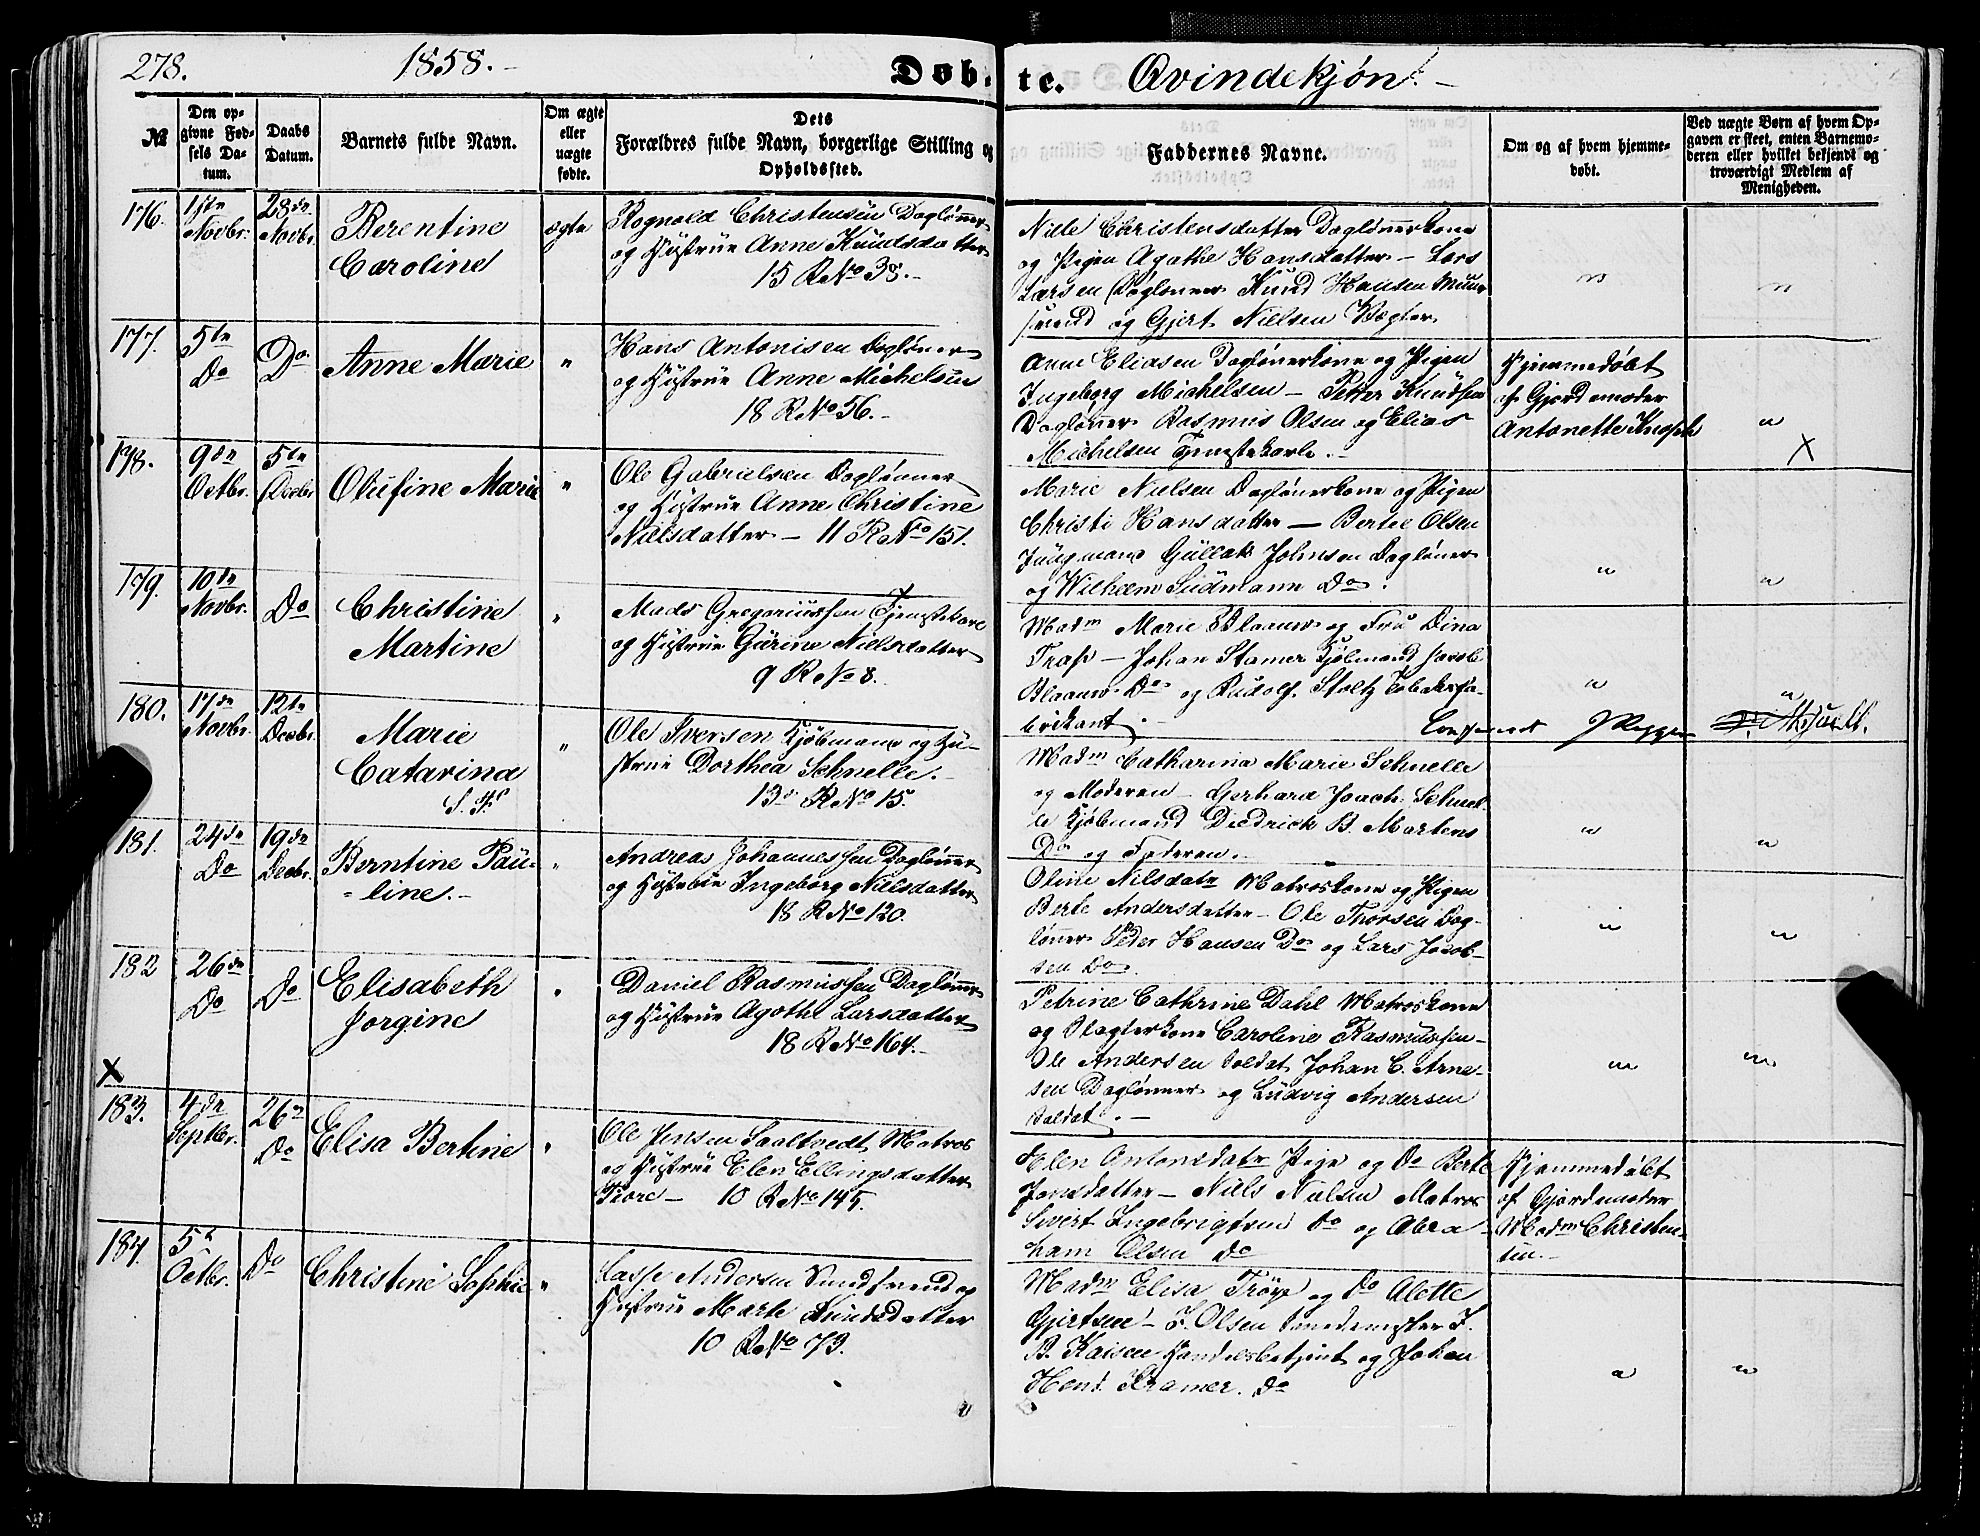 278. 1858. Døb- te. Qvindekjøn.
№
Den opgivne Fødsels Datum.
Daabs Datum.
Barnets fulde Navn.
Om ægte eller uægte fødte.
Dets Forældres fulde Navn, borgerlige Stilling og Opholdssted.
Faddernes Navne.
Om og af hvem hjemmedøbt.
Ved uægte Børn af hvem Opgaven er skeet, enten Barnemoderen eller hvilket bekjendt og troværdigt Medlem af Menigheden.
176. 1ste Novbr. 28de Novbr. Berentine Caroline ægte
Rognald Christensen Dagløner
og Hustrue Anne Knudsdatter
15 R No 38.
Nille Christensdatter Daglønerkone
og Pigen Agathe Hansdatter - Lars
Larsen Dagløner Knud Hansen Muur
svend og Gjert Nielsen Vægter
177. 5te Do Do Anne Marie "
Hans Antonisen Dagløner
og Hustrue Anne Michelsen
18 R No 56.
Anne Eliasen Daglønerkone og Pigen
Ingeborg Michelsen - Petter Knudsen
Dagløner Rasmus Olsen og Elias
Michelsen Tjenestekarle.
Hjemmedøbt
af Gjordemoder
Antonette Knoph
" X
178. 9de Octbr. 5te Decbr. Olufine Marie "
Ole Gabrielsen Dagløner
og Hustrue Anne Christine
Nielsdatter - 11 R No 151.
Marie Nielsen Daglønerkone og Pigen
Christi Hansdatter - Bertel Olsen
Jungmand Gullak Johnsen Dagløner
og Wilhelm Sudmann Do.
179. 10de Novbr. Do Christine Martine "
Mads Gregoriussen Tjenestekarl
og Hustrue Gurine Nielsdatter
9 R No 8.
Madm Marie Blaauw og Fru Dina
Trap - Johan Stamer Kjøbmand Jacob
Blaauw Do og Rudolf Stoltz Tobaksfa-
brikant.
180. 17de Novbr. 12te Decbr. Marie Catarina "
Ole Iversen Kjøbmand og Hu-
strue Dorthea Schnelle.
13 R No 15.
Madm Catharina Marie Schnelle
og Moderen - Gerhard Joach. Schnel-
le Kjøbmand Diedrich B. Martens
Do og Faderen.
181. 24de Do 19de Decbr. Berntine Pau-
line. "
Andreas Johannessen Dagløner
og Hustrue Ingeborg Nielsdatter
18 R No 120.
Oline Nilsdatr Matroskone og Pigen
Berte Andersdatter - Ole Thorsen Dag-
løner Peder Hansen Do og Lars Jacob-
sen Do.
182 26de Do Do Elisabeth Jorgine "
Daniel Rasmussen Dagløner
og Hustrue Agathe Larsdatter
18 R No 164.
Petrine Cathrine Dahl Matroskone
og Slagterkone Caroline Rasmussen -
Ole Andersen Soldat Johan C. Arne-
sen Dagløner og Ludvig Andersen
Soldat.
X
183. 4de Septbr. 26 Do Elisa Bertine "
Ole Jensen Saaltvedt Matros
og Hustrue Elen Ellingsdatter
10 R No 145.
Elen Antonsdatr Pige og Do Berte
Jonsdatter - Niels Nielsen Matros
Sivert Ingebrigtsen Do og Abra-
ham Olsen Do
Hjemmedøbt
af Gjordemoder
Madm Christen-
sen.
184. 5t Octbr. Do Christine Sophie "
Lasse Andersen Smedsvend og
Hustrue Marte Knudsdatter
10 R No 73.
Madm Elisa Trøye og Do Alette
Gjertsen - J. Olsen Smedemester J.
B. Kaisen Handelsbetjent og Johan
Hend. Kramer. Do